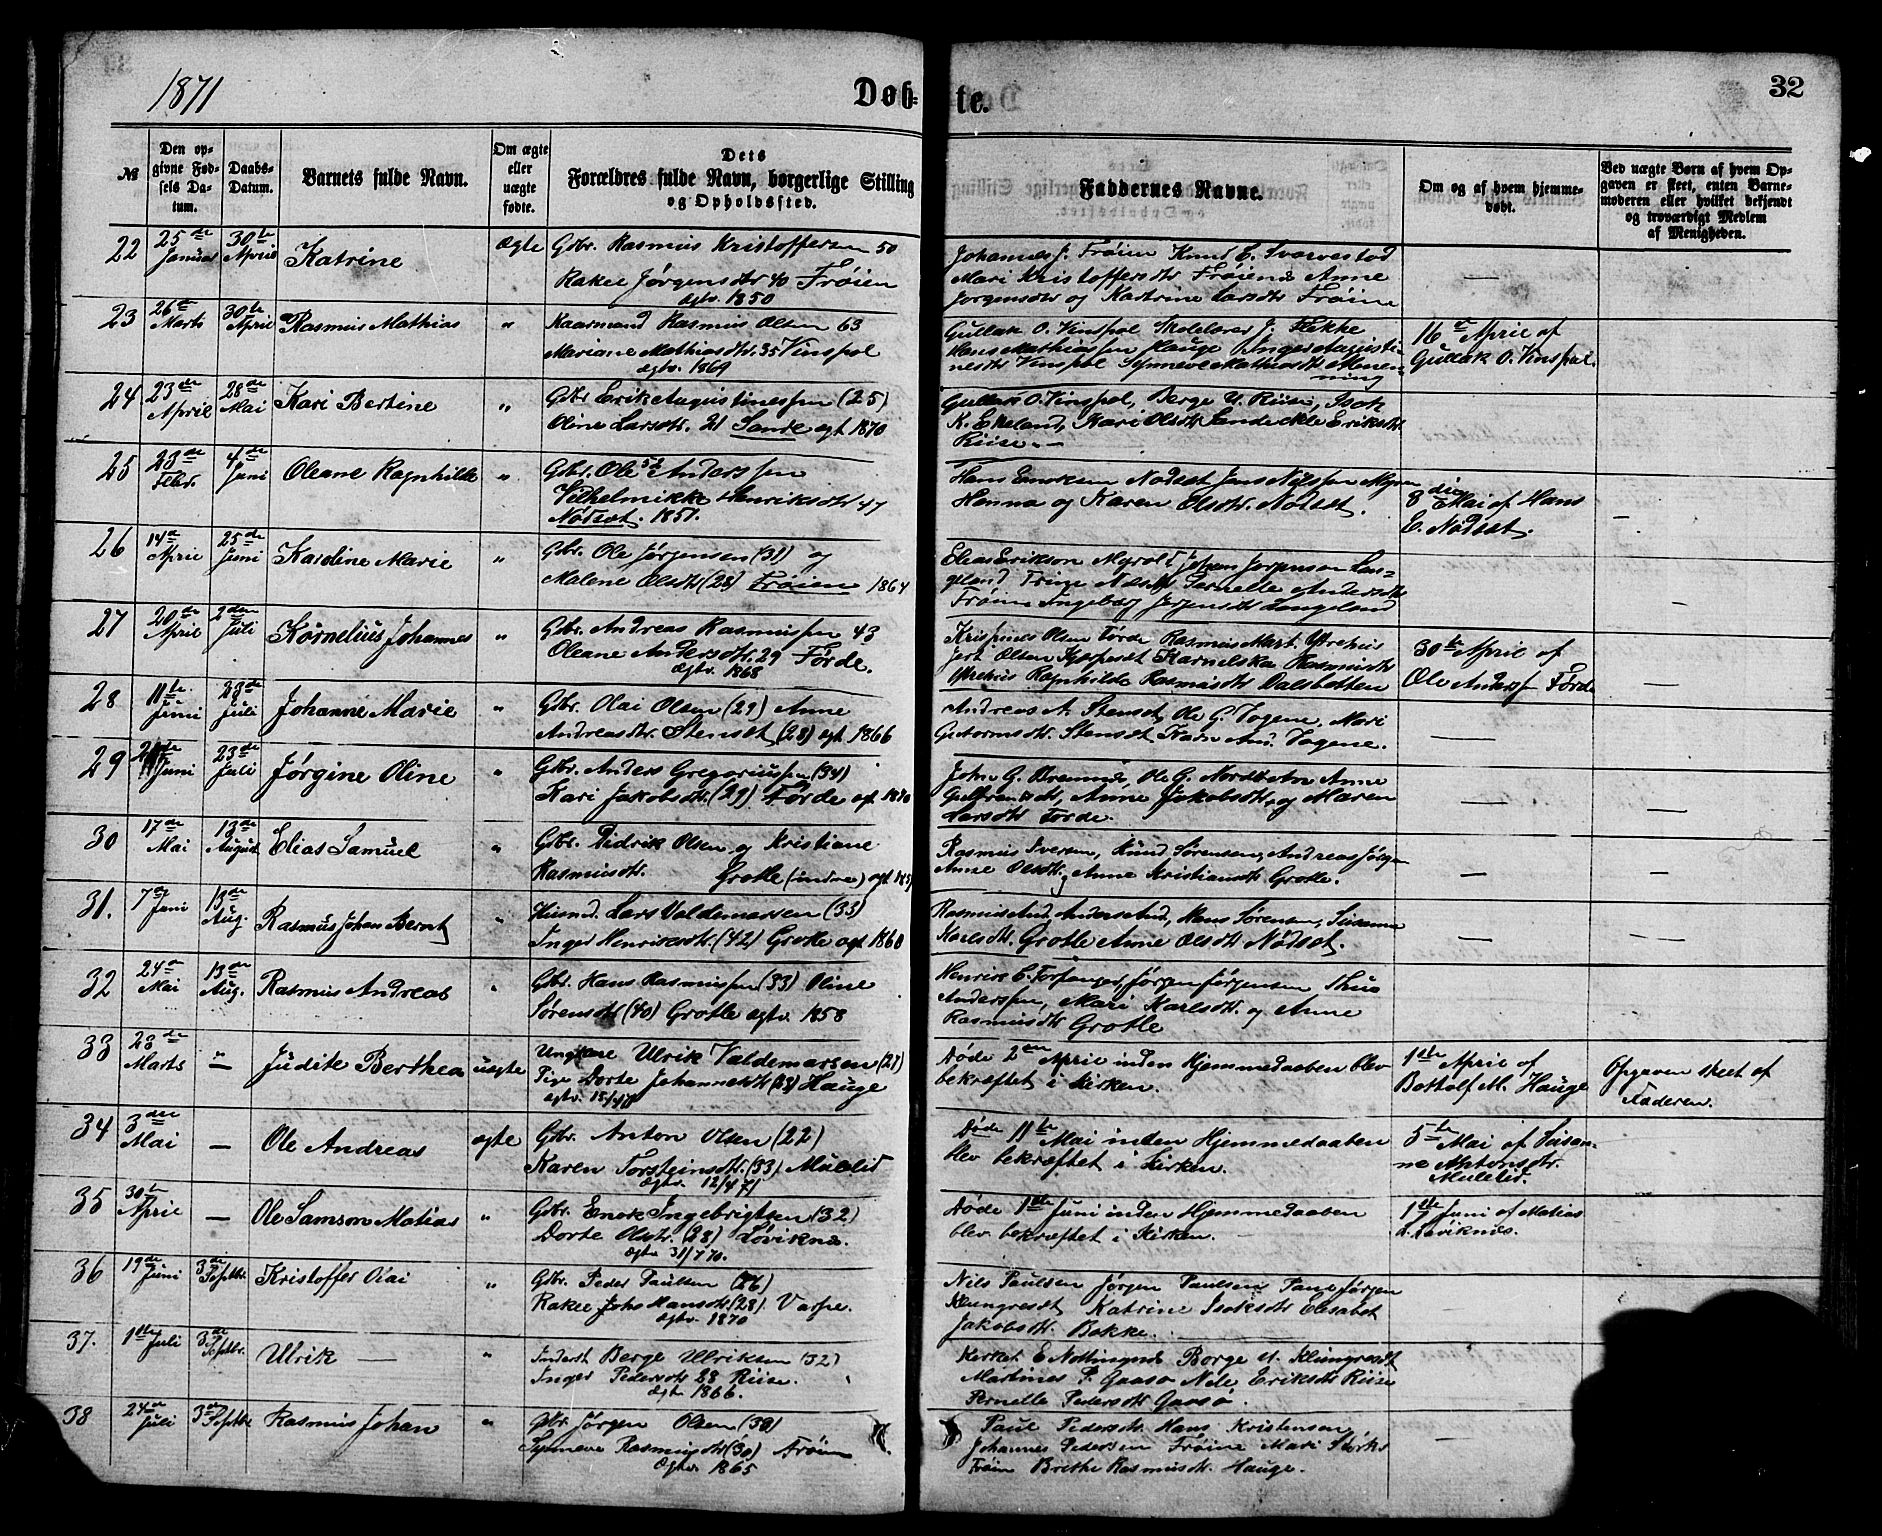 1871
Døb-
te.
32
№
Den op-
givne Fød-
sels Da-
tum.
Daabs-
Datum.
Barnets fulde Navn.
Om ægte
eller
uægte
fødte.
Dets
Forældres fulde Navn, borgerlige Stilling
og Opholdssted.
Faddernes Navne.
Om og af hvem hjemme-
døbt.
Ved uægte Børn af hvem Op-
gaven er skeet, enten Barne-
moderen eller hvilket bekjendt
og troværdigt Medlem
af Menigheden.
22 25de Januar 30te April Katrine ægte Gdbr. Rasmus Kristoffersen 50
Rakel Jørgensdtr 40 Frøien
ægtv. 1850
Johannes J. Frøien Knud E. Svarvestad
Mari Kristoffersdtr Frøien Anne
Jørgensdtr og Katrine Larsdtr Frøien
—
23 26de Marts 30te April Rasmus Mathias " Kaarmand Rasmus Olsen 63
Mariane Mathiasdtr. 35 Vinspol
ægtv. 1869
Gullak O. Vinspol Skolelærer J. Flekke
Hans Mathiassen Hauge Inger Augusti-
nesdtr Vinspol Synneve Mathiasdtr
16de April af
Gullak O. Vinspol.
24 23de April 28de Mai Kari Bertine " Gdbr Erik Augustinessen (25)
Oline Larsdtr. 21 Sande ægt 1870
Gullak O. Vinspol, Berge U. Riise, Isak
K. Ekeland, Kari Olsdtr Sande Eriksdtr
Riise. —
25 23de Febr. 4de Juni Oleane Ragnhilde " Gdbr. Ole 52 Anderssen
Vilhelmikke Henriksdtr 47
Nødset. 1851.
Hans Nødset Jens Nilssen
Hanna og Karen Olsdtr. Nødset.
8die Mai af Hans
E. Nødset.
—
26 14de April 25de Juni Karoline Marie " Gdbr. Ole Jørgensen (31) og
Malene Olsdtr (28) Frøien 1864
Elias Erikson Myrold Johans Jørgenson Lan-
geland Pernelle Andersdtr
Frøien Ingeborg Jørgensdtr Langeland
27 20de April 2den Juli Kornelius Johannes " Gdbr. Andreas Rasmussen 43
Oleane Andersdtr. 29 Førde.
ægtv. 1868
Krispinus Olsen Førde Rasmus Mart. Ytrehus
Olsen Karnelska Rasmusdtr
Ytrehus Ragnhilde Rasmusdtr Dalsbotten
30te April af
Ole Anders. Førde
—
28 11te Juni 23de Juli Johanne Marie " Gdbr. Olai Olsen (29) Anne
Andreasdtr. Stenset (28) ægt 1866
Andreas A. Stenset, Ole G. Vogene, Mari
Gutormsdtr Stenset Karn And. Vogene.
—
—
29 Juni 23de Juli Jørgine Oline " Gdbr. Anders Gregoriussen (34)
Kari Jakobsdtr. (29) Førde ægt 1870
John G. Ole G. Anne
Anne Jakobsdtr, og Maren
Larsdtr Førde.
—
—
30 17de Mai 13de August Elias Samuel " Gdbr. Didrik Olsen og Kristiane
Rasmusdtr. Grotle (indre) ægt
Rasmus Iversen, Knud Sørensen, Andreas Jørgen
Anne Olsdtr, Anne Kristiansdtr Grotle.
—
—
31. 7de Juni 13de Aug. Rasmus Johan Bernt " Husmd. Lars Valdemarsen (33)
Inger Henriksdtr. (42) Grotle ægt 1860
Rasmus And. Anders And, Hans Sørensen, Susanne
Karlsdtr. Grotle Anne Olsdtr Nødset.
—
—
32 24de Mai 13de Aug. Rasmus Andreas " Gdbr. Hans Rasmussen (33) Oline
Sørensdtr (40) Grotle ægtv. 1858
Henrik E. Torfanger, Jørgen Jørgensen
Anderssen, Mari Karlsdtr. og Anne
Rasmusdtr Grotle
33 23de Marts " — Judite Berthea uægte Ungkarl Ulrik Valdemarsen (27)
Pige Dorte Johannesdtr (23) Hauge
Døde 2den April inden Hjemmedaaben blev
bekræftet i Kirken.
1ste April af
Bottolf M. Hauge
Opgaven skeet af
Faderen.
34 3die Mai — Ole Andreas ægte Gdbr. Anton Olsen (22)
Karen Torsteinsdtr. (33) Mulelid
Ægtv. 12/4 71
Døde 11te Mai inden Hjemmedaaben
blev bekræftet i Kirken.
5te Mai af Susan-
ne Antonsdtr.
Mulelid.
35 30te April — Ole Samson Matias " Gdbr. Enok Ingebrigtsen (32)
Dorte Olsdtr. (28) Løviknes.
Ægtv 31/7 70.
Døde 1ste Juni inden Hjemmedaaben
blev bekræftet i Kirken.
1ste Juni af Matias
Løviknes.
36 19de Juni 3de Septbr. Kristoffer Olai " Gdbr. Peder Paulsen (26)
Rakel Johs Mansdtr (28). Varpe.
ægtv. 1870
Nils Paulsen Jørgen Paulsen Jørgen
Klungreset Katrine Isaksdtr Elisabet
Jakobsdtr. Bakke.
37. 1ste Juli 3de Septbr. Ulrik — " Inderst Berge Ulriksen (32)
Inger Pedersdtr 28 Riise.
Ægt 1866.
E Berge U. Klungreset
Martines P. Gaasø Nele Eriksdtr Riise
Pernelle Pedersdtr Gaasø.
38 24de Juli 3de Septbr Rasmus Johan " Gdbr. Jørgen Olsen (38)
Synneve Rasmusdtr (30) Frøien
Ægtv. 1865
Paul Pedersdtr. Hans Kristensen
Johannes Pedersen Frøien Mari
Frøien Brethe Rasmusdtr. Hauge.